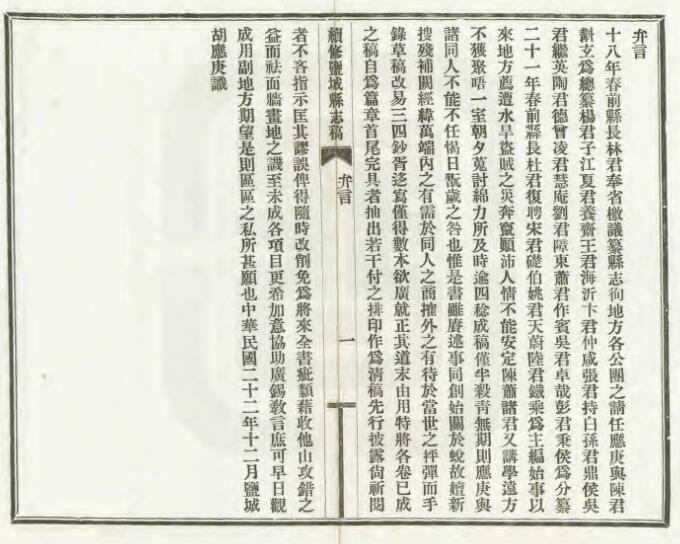 弁言
十八年春前縣長林君奉省檄議纂縣志徇地方各公團之請任應庚與陳君
斠玄爲總纂楊君子江夏君養齋王君海沂卞君仲咸張君持白孫君鼎侯吳
君繼英陶君德曾凌君慧庵劉君障東蕭君作賓吳君卓哉彭君秉侯爲分纂
二十一年春前縣長杜君復聘宋君礎伯姚君天蔚陸君鐵乘爲主編始事以
來地方薦遭水旱盜賊之災奔竄顚沛人情不能安定陳蕭諸君又講學遠方
不獲聚唔一室朝夕蒐討綿力所及時逾四稔成稿僅半殺靑無期則應庚與
諸同人不能不任愒日翫歲之咎也惟是書雖賡述事同創始關於蛻故嬗新
搜殘補闕經緯萬端內之有需於同人之商搉外之有待於當世之抨彈而手
錄草稿改易三四鈔胥迻寫僅得數本欲廣就正其道末由用特將各卷已成
之稿自爲篇章首尾完具者抽出若干付之排印作爲淸稿先行披露尙祈閱
續修鹽城縣志稿
弁言
一
者不吝指示匡其謬誤俾得隨時改削免爲將來全書疵纇藉收他山攻錯之
益而祛面牆畫地之譏至未成各項目更希加意協助廣錫敎言庶可早日觀
成用副地方期望是則區區之私所甚願也中華民國二十二年十二月鹽城
胡應庚識